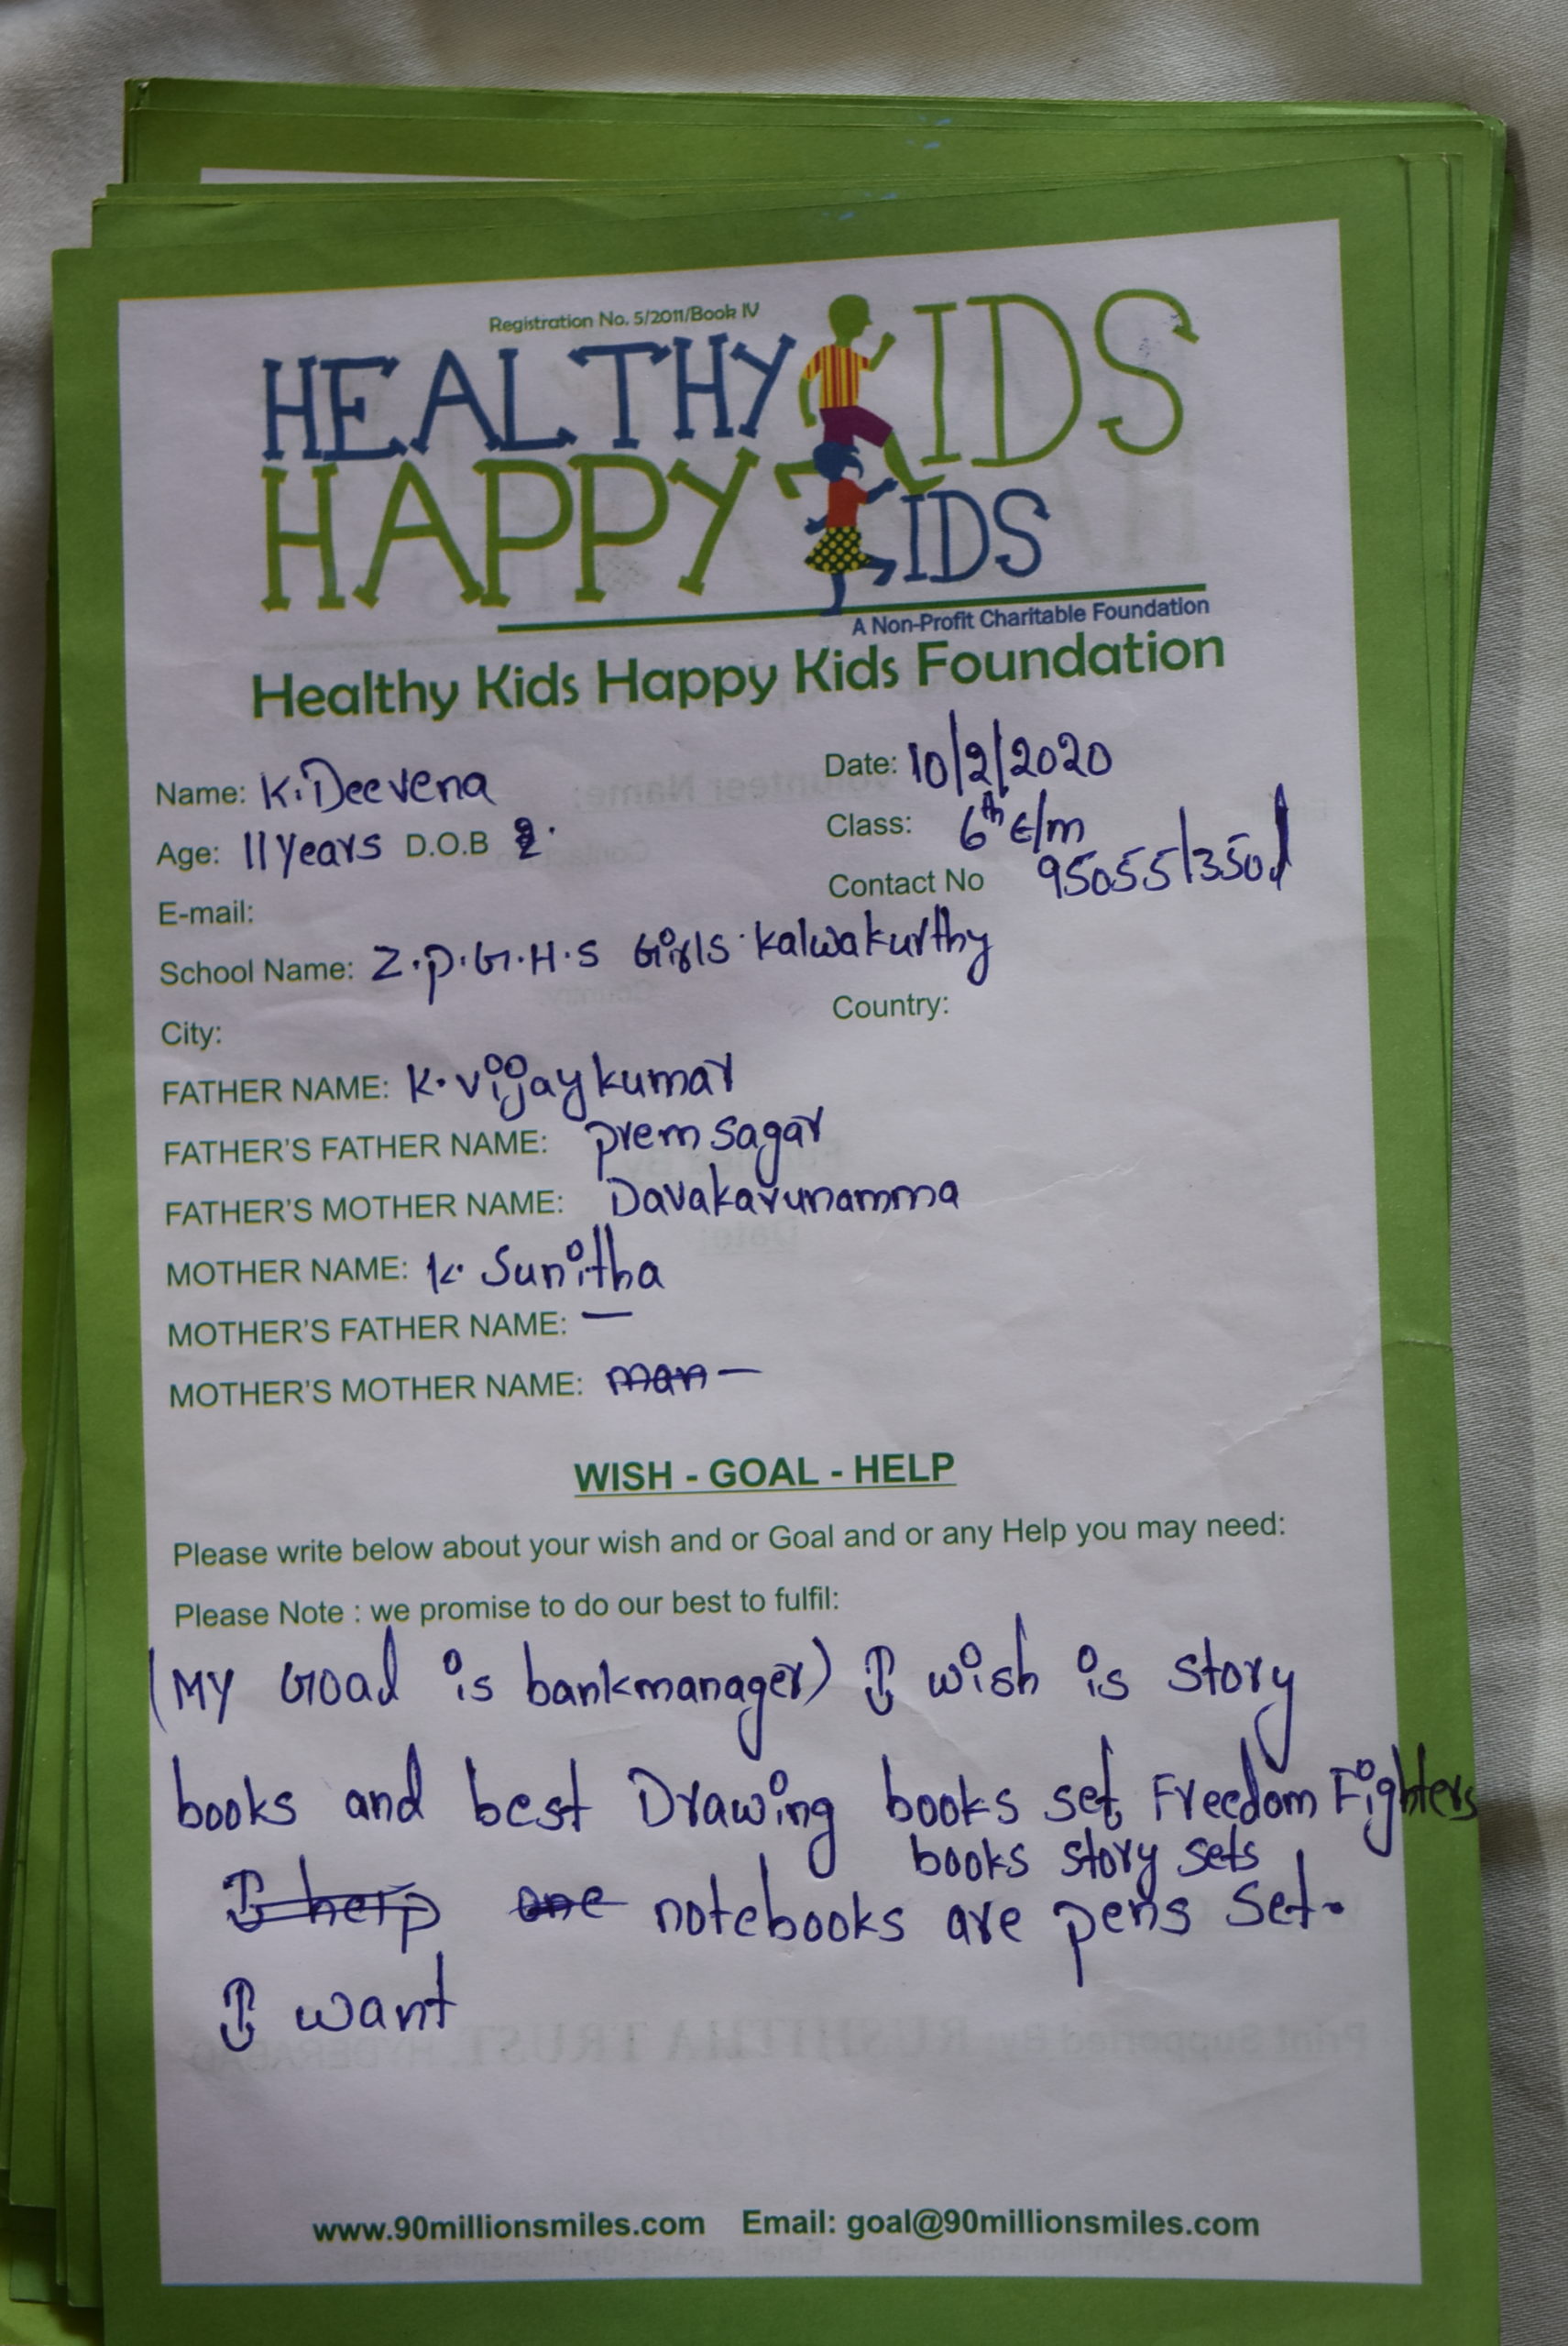 Registration No. 5/2011/Book IV
HEALTHY KIDS
HAPPY KIDS
A Non-Profit Charitable Foundation
Healthy Kids Happy Kids Foundation
Name: K. Deevena Date: 10/2/2020
Age: 11 years D.O.B 2. Class: 6th E/m
E-mail: Contact No 9505513501
School Name: Z.P.G.H.S Girls. Kalwakurthy
City: Country:
FATHER NAME: K. vijay kumar
FATHER'S FATHER NAME: prem sagar
FATHER'S MOTHER NAME: Davakarunamma
MOTHER NAME: K. Sunitha
MOTHER'S FATHER NAME: —
MOTHER'S MOTHER NAME: man —
WISH - GOAL - HELP
Please write below about your wish and or Goal and or any Help you may need:
Please Note : we promise to do our best to fulfil:
(MY Goal is bankmanager) I wish is story
books and best Drawing books set, Freedom Fighters
books story sets
I herp one notebooks are pens set.
I want
www.90millionsmiles.com Email: goal@90millionsmiles.com